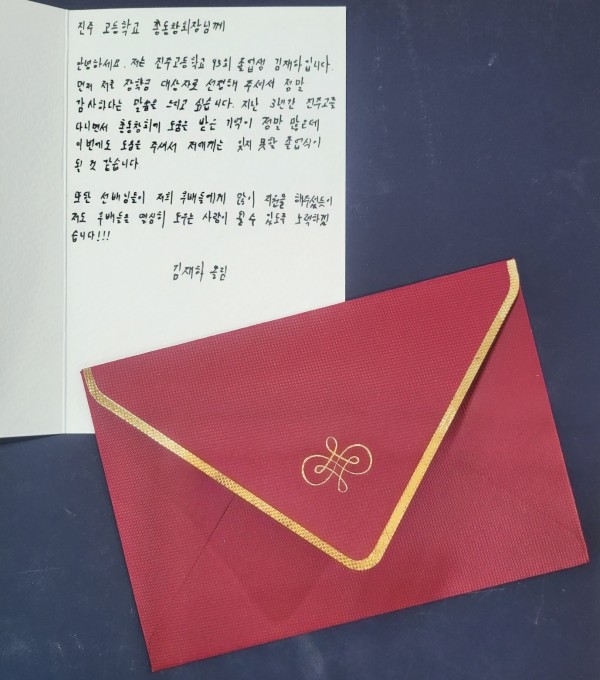 진주 고등학교 총동창회장님께
안녕하세요. 저는 진주고등학교 93회 졸업생 김재하입니다.
먼저 저를 장학금 대상자로 선정해 주셔서 정말
감사하다는 말씀을 드리고 싶습니다. 지난 3년간 진주고를
다니면서 총동창회에 도움을 받은 기억이 정말 많은데
이번에도 도움을 주셔서 저에게는 잊지 못할 졸업식이
된 것 같습니다
또한 선배님들이 저희 후배들에게 많이 지원을 해주셨듯이
저도 후배들을 열심히 도우는 사람이 될 수 있도록 노력하겠
습니다!!!
김재하 올림